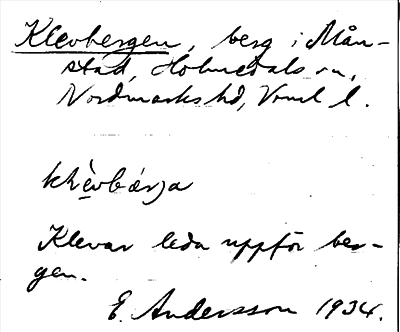 Klevbergen, berg i Mån-
stad, Holmedals sn,
Nordmarks hd, Vrml l.
klèvbærja
Klevar leda uppför ber-
gen.
E. Andersson 1934.